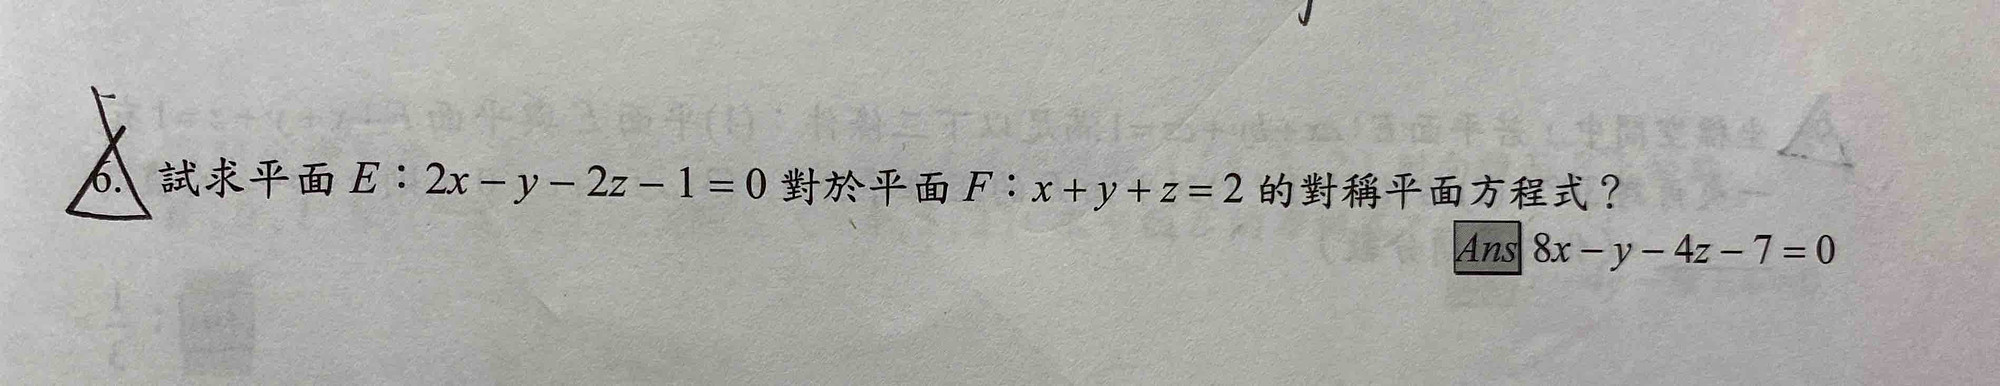 6. 試求平面 E：2x − y − 2z − 1 = 0 對於平面 F：x + y + z = 2 的對稱平面方程式？
Ans 8x − y − 4z − 7 = 0